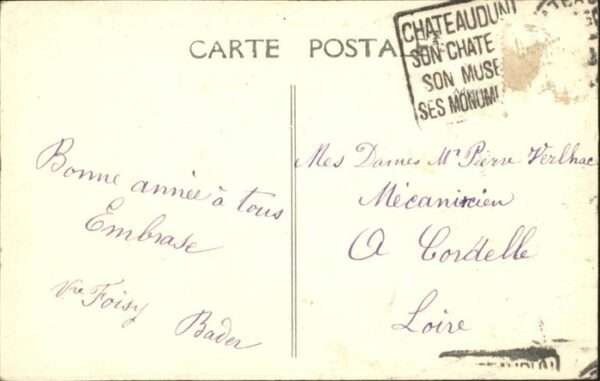 CARTE POSTA
CHATEAUDUN
SON CHATE
SON MUSE
SES MONUM
Bonne année à tous
Embrase
Vve Foisy
Bader
Mes Dames Mr Pierre Verlhac
Mécanicien
A Cordelle
Loire